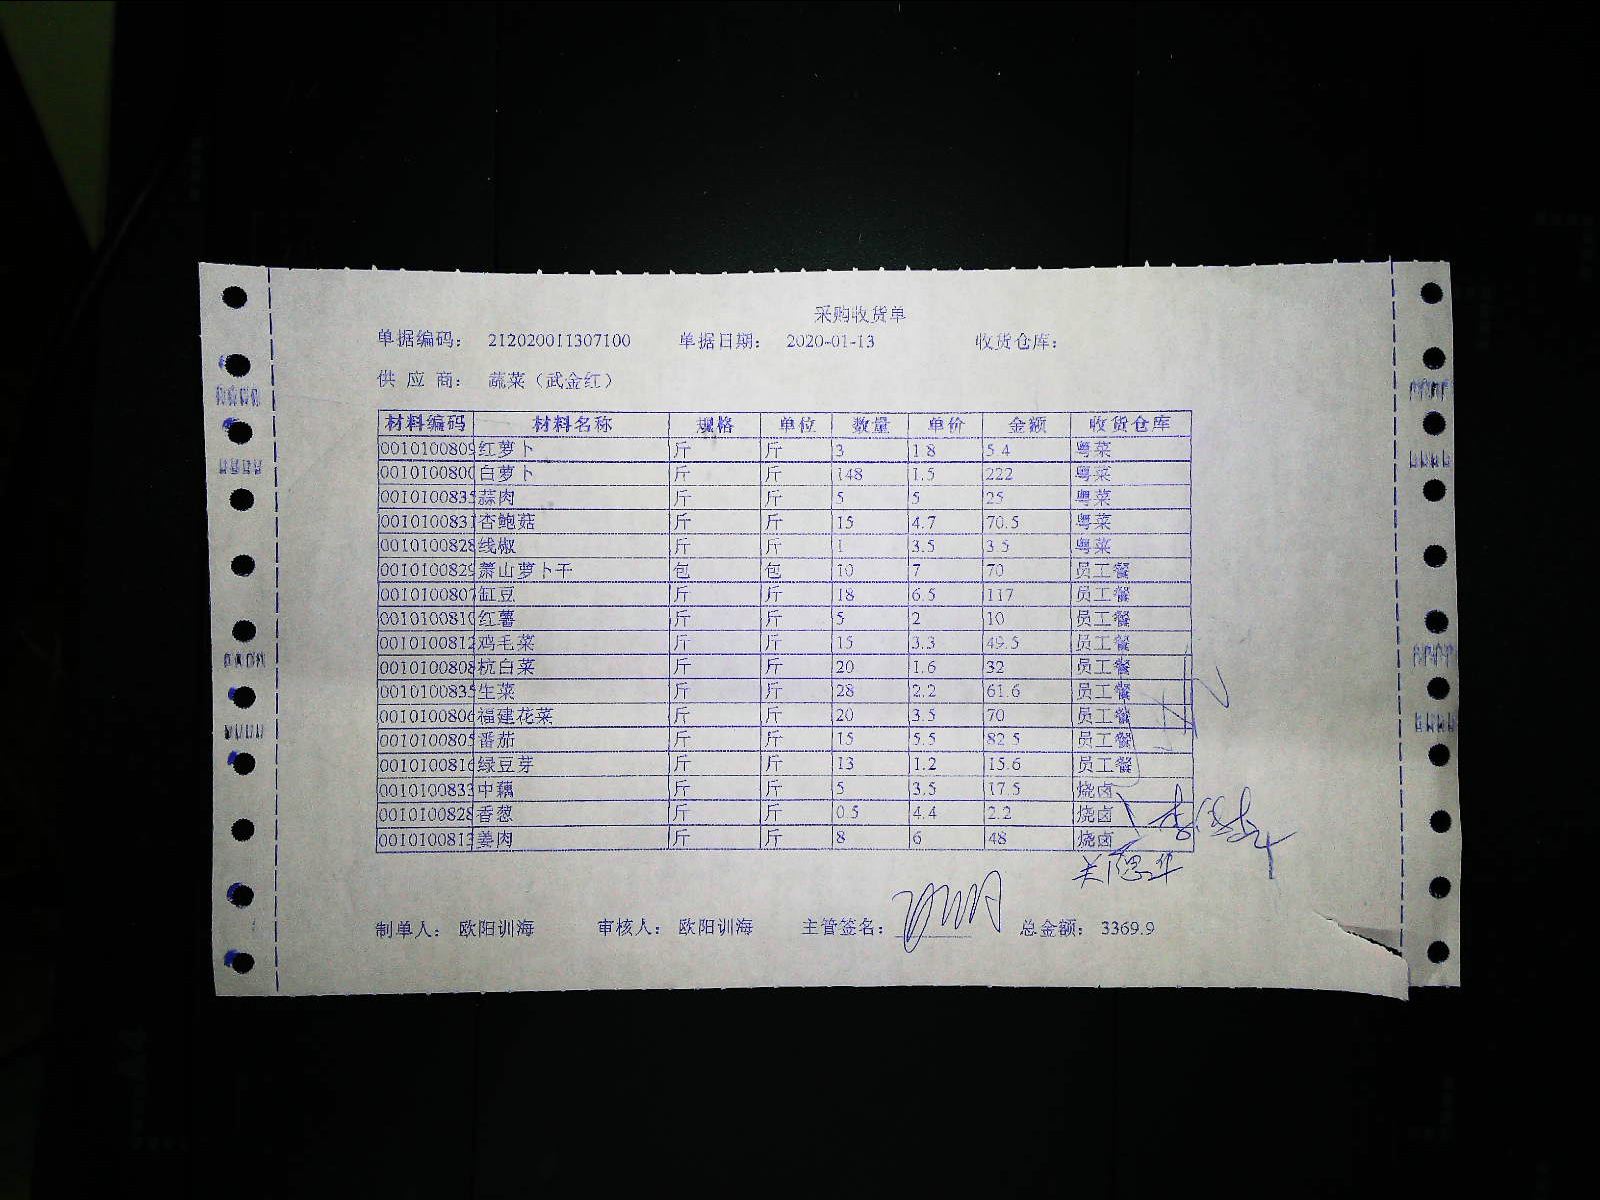 采购收货单
单据编码： 212020011307100 单据日期： 2020-01-13 收货仓库：
供 应 商： 蔬菜（武金红）
材料编码 材料名称 规格 单位 数量 单价 金额 收货仓库
0010100809 红萝卜 斤 斤 3 1.8 5.4 粤菜
001010080 白萝卜 斤 斤 148 1.5 222 粤菜
001010083 蒜肉 斤 斤 5 5 25 粤菜
001010083 杏鲍菇 斤 斤 15 4.7 70.5 粤菜
0010100828 线椒 斤 斤 1 3.5 3.5 粤菜
001010082 萧山萝卜干 包 包 10 7 70 员工餐
001010080 缸豆 斤 斤 18 6.5 117 员工餐
001010081 红薯 斤 斤 5 2 10 员工餐
0010100812 鸡毛菜 斤 斤 15 3.3 49.5 员工餐
0010100808 杭白菜 斤 斤 20 1.6 32 员工餐
001010083 生菜 斤 斤 28 2.2 61.6 员工餐
0010100806 福建花菜 斤 斤 20 3.5 70 员工餐
001010080 番茄 斤 斤 15 5.5 82.5 员工餐
0010100816 绿豆芽 斤 斤 13 1.2 15.6 员工餐
0010100833 中藕 斤 斤 5 3.5 17.5 烧卤
0010100828 香葱 斤 斤 0.5 4.4 2.2 烧卤
0010100813 姜肉 斤 斤 8 6 48 烧卤
制单人： 欧阳训海 审核人： 欧阳训海 主管签名： 总金额： 3369.9